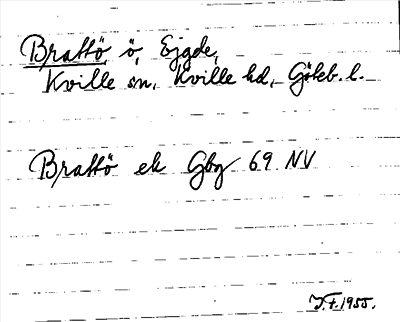 Brattö ö, Ejgde,
Kville sn, Kville hd, Göteb. l.
Brattö ek Gbg 69 NV
1955.